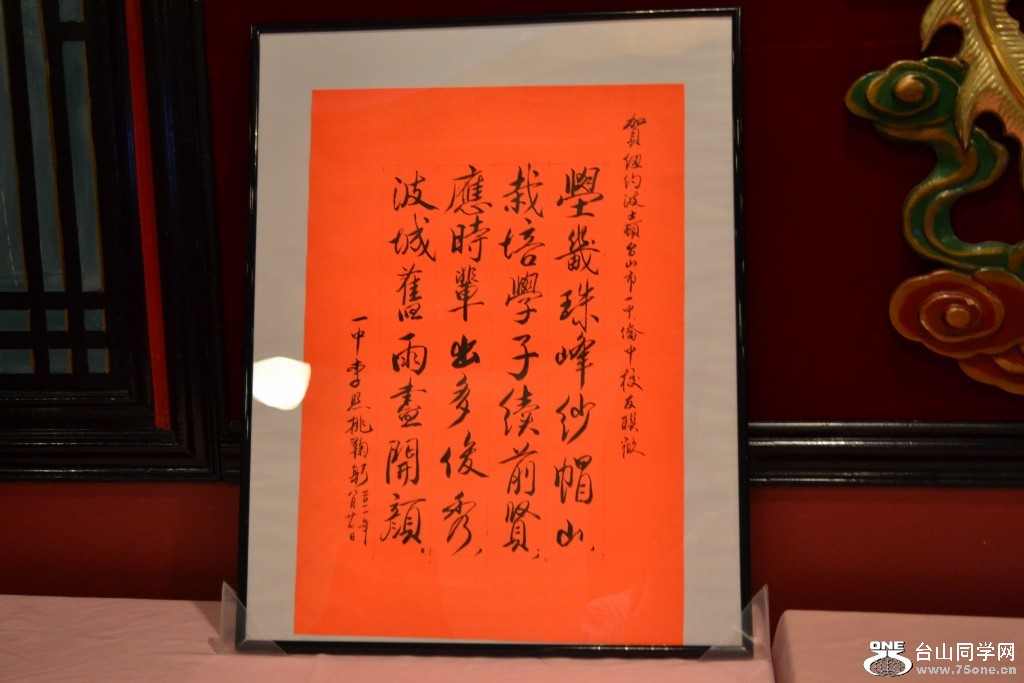 賀紐約波士頓台山市一中僑中校友联欢
壆畿珠峰紗帽山,
栽培學子續前賢,
應時輩出多俊秀,
波城舊雨盡開顏。
一中李照桃鞠躬
八月廿日
ONE 台山同学网
www.75one.cn